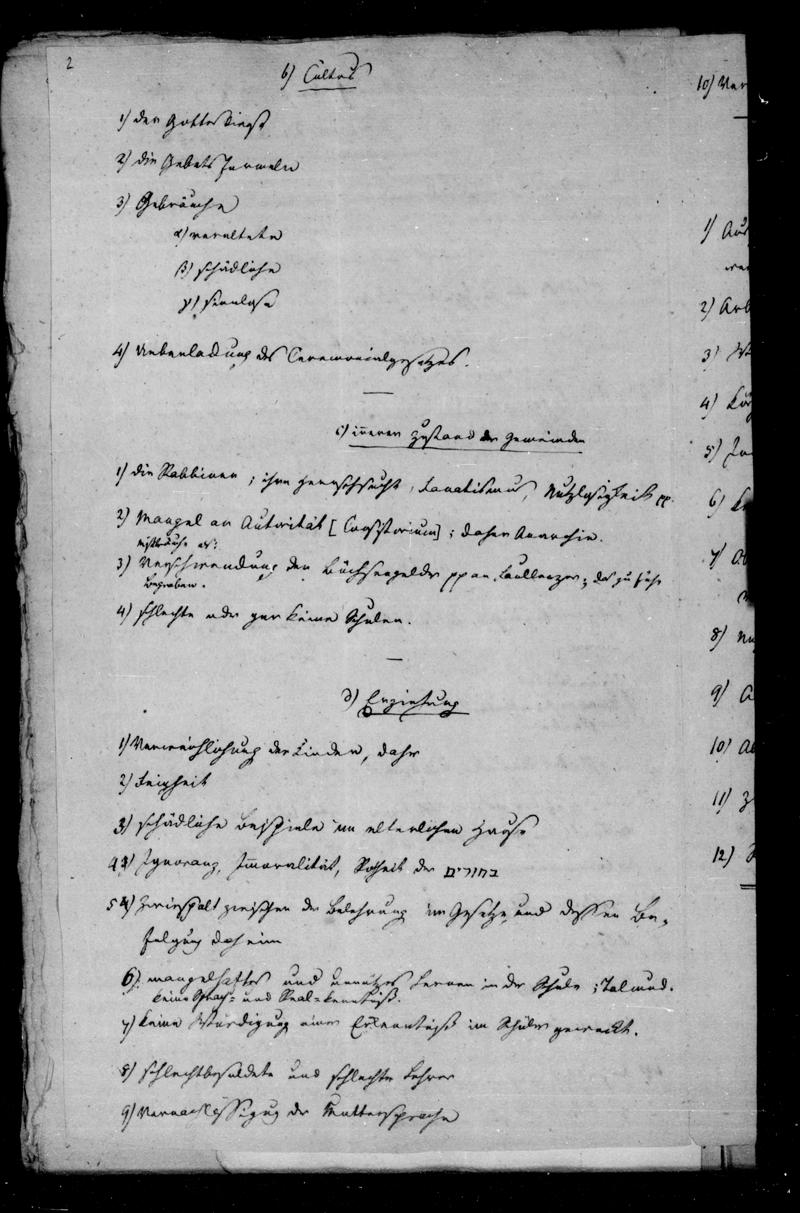 2
b) Cultus
1) der Gottesdienst
2) die Gebets Formeln
3) Gebräuche
α) veraltete
β) schädliche
γ) sinnlose
4) Ueberladung des Ceremonialgesetzes.
c) innerer Zustand der Gemeinden
1) die Rabbinen; ihre Herrschsucht, Fanatismus, Nutzlosigkeit pp.
2) Mangel an Autorität [Consistorium]; daher Anarchie.
Mißbräuche als:
3) Verschwendung der Büchsengelder pp an Faullenzer; das zu frühe
Begraben.
4) schlechte oder gar keine Schulen.
d) Erziehung
1) Verweichlichung der Kinder, daher
2) Feigheit
3) schädliche Beispiele im elterlichen Hause
4) Ignoranz, Immoralität, Roheit der בחורים
5) Zwiespalt zwischen der Belehrung im Gesetze und dessen Be-
folgung daheim
6) mangelhaftes und unnützes Lernen in der Schule; Talmud.
keine Sprach- und Real-Kenntniß.
7) keine Würdigung einer Erkenntniß im Schüler geweckt.
8) schlechtbesoldete und schlechte Lehrer
9) Vernachlässigung der Muttersprache
10) Ver
1)
2) Arb
3)
4)
5)
6)
7)
8)
9) A
10)
11)
12)